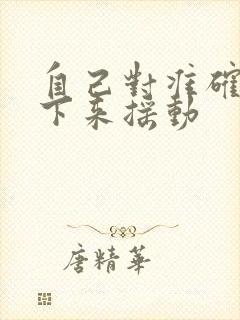 自己對准確
下來搖動
唐精華